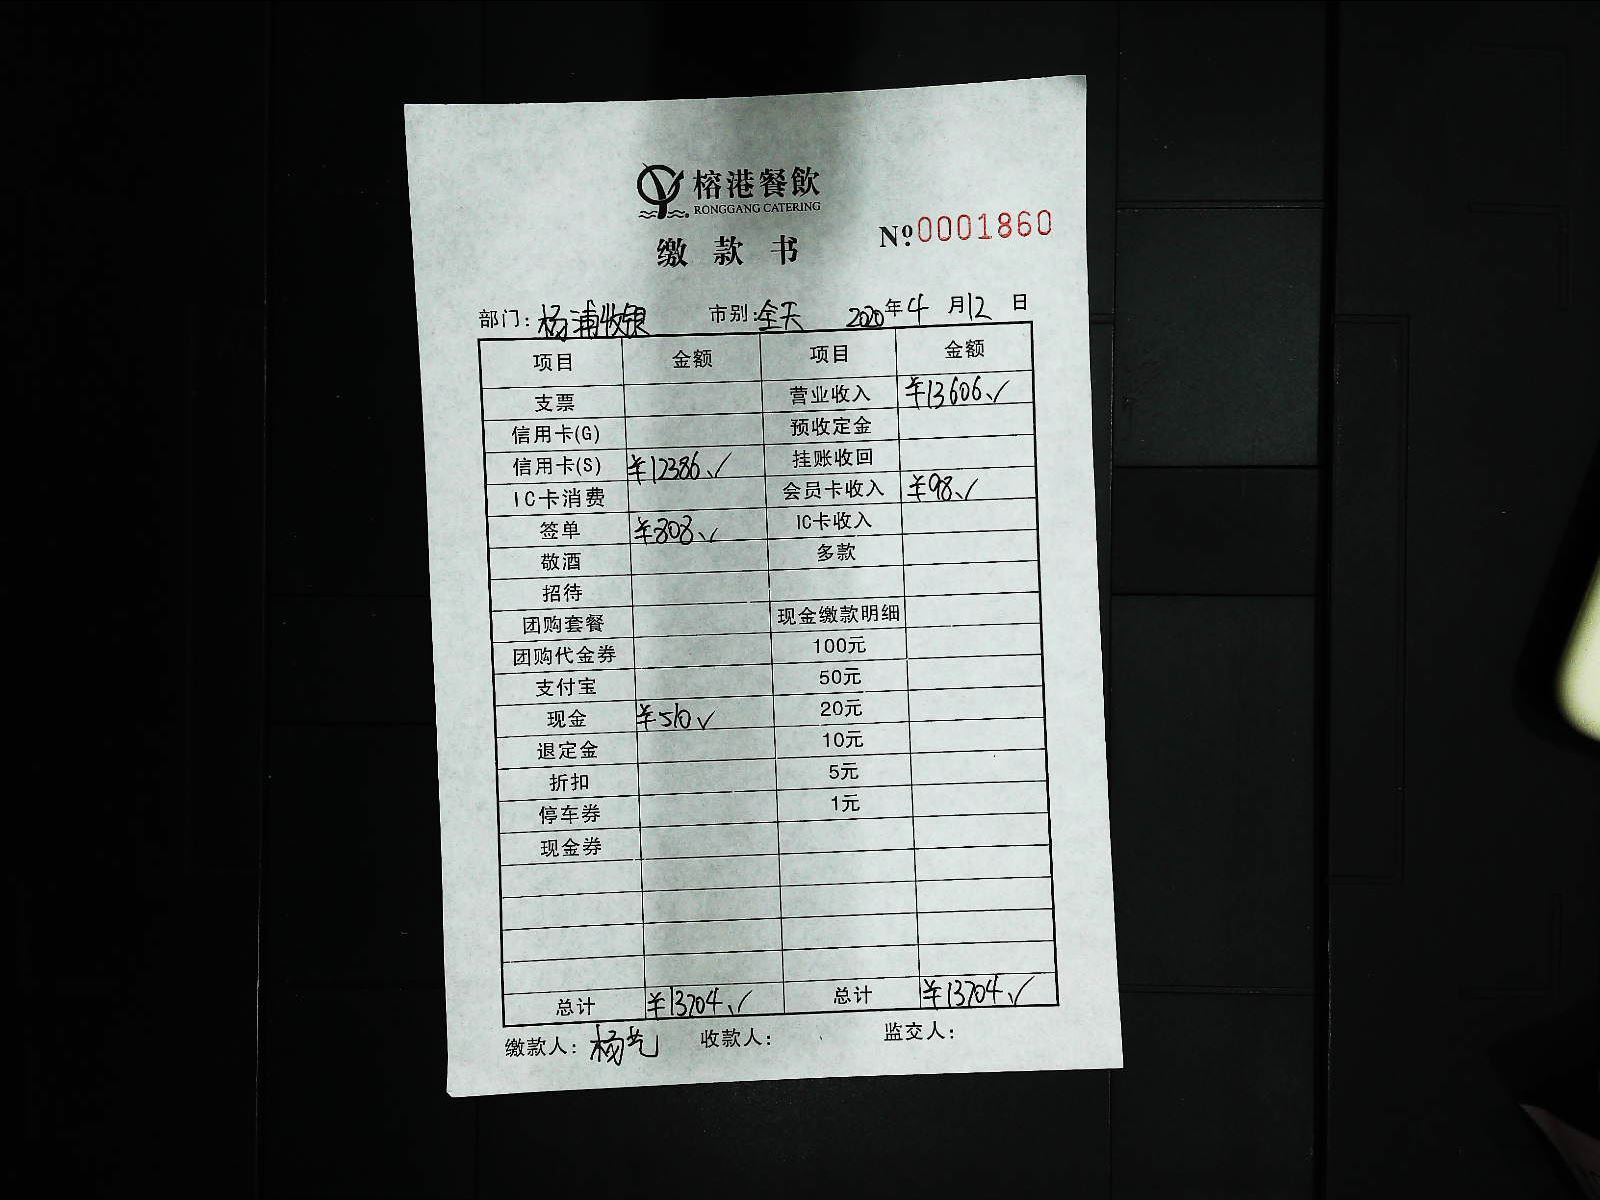 榕港餐飲
RONGGANG CATERING
缴款书 №0001860
部门: 杨浦收银 市别: 全天 2020年4月12日
项目 金额 项目 金额
支票 营业收入 ¥13606
信用卡(G) 预收定金
信用卡(S) ¥12386 挂账收回
IC卡消费 会员卡收入 ¥98
签单 ¥808 IC卡收入
敬酒 多款
招待
团购套餐 现金缴款明细
团购代金券 100元
支付宝 50元
现金 ¥510 20元
退定金 10元
折扣 5元
停车券 1元
现金券
总计 ¥13704 总计 ¥13704
缴款人: 杨艺 收款人: 监交人: